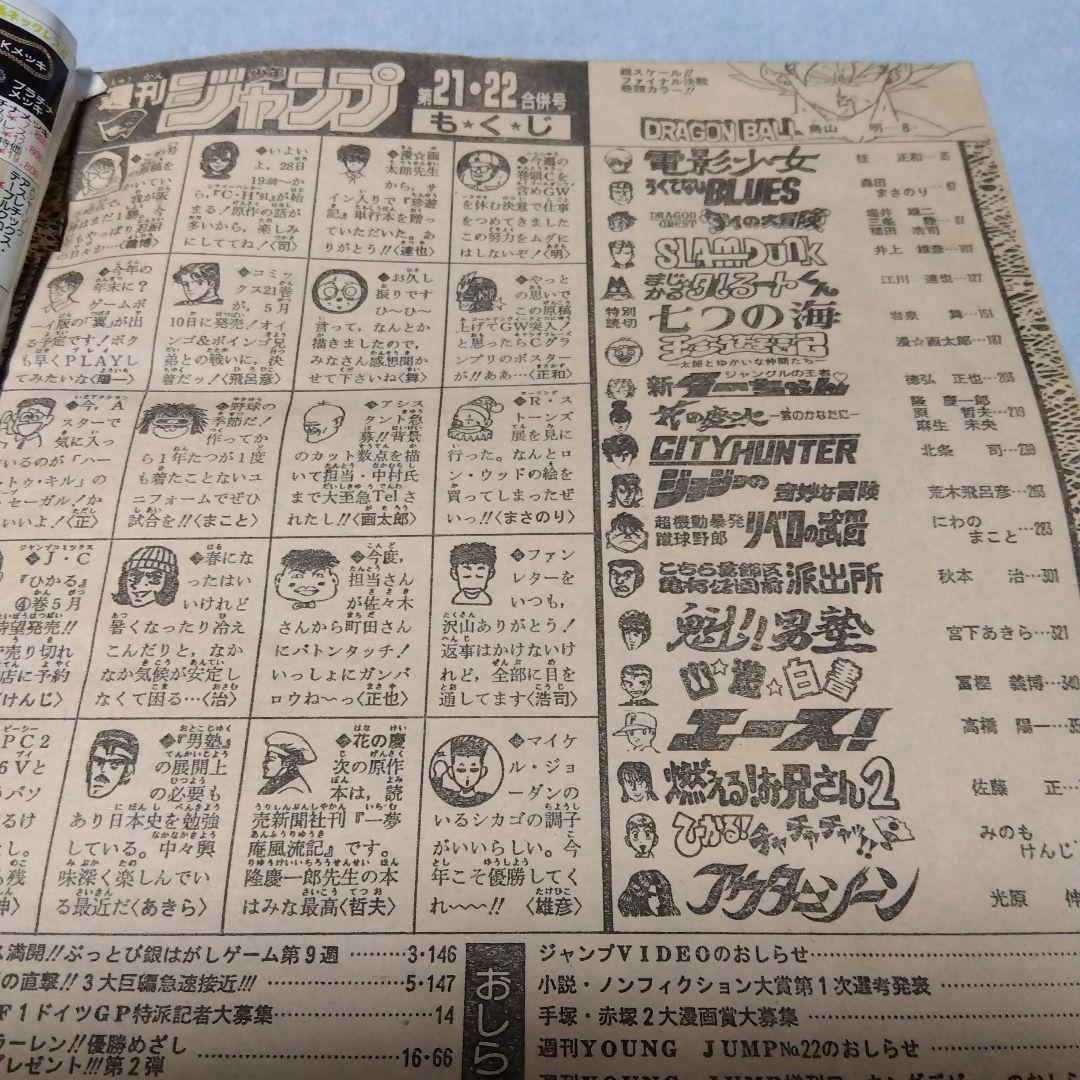 週刊
少年
ジャンプ
第21・22合併号
も★く★じ
銀スケール!!
ファイナル決戦
巻頭カラー!!
DRAGON BALL
鳥山 明…8
電影少女
桂 正和…35
ろくでなしBLUES
森田
まさのり…67
DRAGON QUEST
ダイの大冒険
堀井 雄二
三条 陸
稲田 浩司
SLAM DUNK
井上 雄彦…107
まじかる☆タルるートくん
江川 達也…127
特別読切
七つの海
岩泉 舞…151
珍遊記
―太郎とゆかいな仲間たち―
漫☆画太郎…187
ジャングルの王者
新ターちゃん♡
徳弘 正也…203
花の慶次―雲のかなたに―
隆 慶一郎
原 哲夫…219
麻生 未央
CITY HUNTER
北条 司…239
ジョジョの奇妙な冒険
荒木飛呂彦…263
超機動暴発
蹴球野郎
リベロの武田
にわの
まこと…283
こちら葛飾区
亀有公園前
派出所
秋本 治…301
魁!!男塾
宮下あきら…321
幽★遊★白書
冨樫 義博…340
エース!
高橋 陽一…
燃える!お兄さん2
佐藤 正…
ひかる!チャチャチャ!!
みのも
けんじ
アウターゾーン
光原 伸
今週の
巻頭Cを
含めGW
を休む決意で仕事
をつめてきました
この努力をムダに
はしないぞ!〈明〉
漫☆画
太郎先生
から、サ
イン入りで『珍遊
記』単行本を贈っ
ていただいた。あ
りがとう!!〈達也〉
いよい
よ、28日
19:00〜か
ら、『C・H'91』が始
まる!原作の話が
多いから、楽しみ
にしててね!〈司〉
〈義博〉
やっと
の思いで
この原稿
上げてGW突入!
と思ったらCグラ
ンプリのポスター
が!!ああ…〈正和〉
お久し
振りです
ひ〜ひ〜
言って、なんとか
描きましたので、
みなさん感想聞か
せて下さいね〈舞〉
コミッ
クス21巻
が、5月
10日に発売!オイ
ンゴ&ボインゴ兄
弟との戦いに、決
着だッ!〈飛呂彦〉
今年の
年末に?
ゲームボ
ーイ版の『翼』が出
る予定です!ボク
も早くPLAYし
てみたいな〈陽一〉
R・ス
トーンズ
展を見に
行った。なんとロ
ン・ウッドの絵を
買ってしまったぜ
いっ!!〈まさのり〉
アシス
タント急
募!!背景
のカット数点を描
いて担当・中村氏
まで大至急Telさ
れたし!!〈画太郎〉
野球の
季節だ!
作ってか
ら1年たつが1度
も着たことないユ
ニフォームでぜひ
試合を!!〈まこと〉
今、A
スターで
気に入っ
ているのが「ハー
トゥ・キル」の
セーガル!か
いいよ!〈正〉
ファン
レターを
いつも、
沢山ありがとう!
返事はかけないけ
れど、全部に目を
通してます〈浩司〉
今度、
担当さん
が佐々木
さんから町田さん
にバトンタッチ!
いっしょにガンバ
ロウね〜っ〈正也〉
春にな
ったはい
いけれど
暑くなったり冷え
こんだりと、なか
なか気候が安定し
なくて困る…〈治〉
J・C
『ひかる』
④巻5月
待望発売!!
売り切れ
店に予約
〈けんじ〉
マイケ
ル・ジョ
ーダンの
いるシカゴの調子
がいいらしい。今
年こそ優勝してく
れ〜〜!!〈雄彦〉
花の慶
次の原作
本は、読
売新聞社刊『一夢
庵風流記』です。
隆慶一郎先生の本
はみな最高〈哲夫〉
『男塾』
の展開上
の必要も
あり日本史を勉強
している。中々興
味深く楽しんでい
る最近だ〈あきら〉
PC2
6Vと
パソ
〈伸〉
満開!!ぶっとび銀はがしゲーム第9週…3・146
の直撃!!3大巨編急速接近!!!…5・147
F1ドイツGP特派記者大募集…14
ラーレン!!優勝めざし
プレゼント!!!第2弾…16・66
おしら
ジャンプVIDEOのおしらせ
小説・ノンフィクション大賞第1次選考発表
手塚・赤塚2大漫画賞大募集
週刊YOUNG JUMP№22のおしらせ